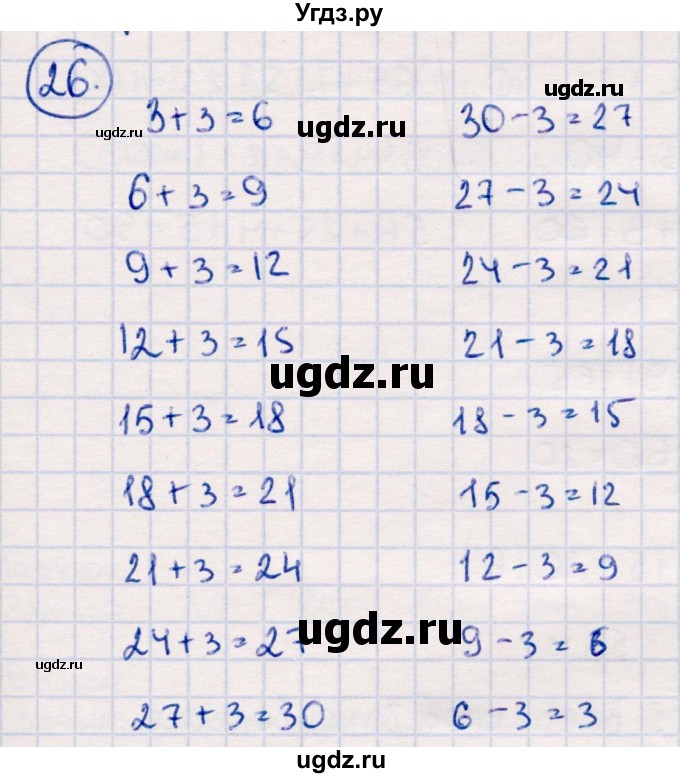 Угдз.ру
26.
3+3=6 30-3=27
6+3=9 27-3=24
9+3=12 24-3=21
12+3=15 21-3=18
15+3=18 18-3=15
18+3=21 15-3=12
21+3=24 12-3=9
24+3=27 9-3=6
27+3=30 6-3=3
ugdz.ru
ugdz.ru
ugdz.ru
ugdz.ru
ugdz.ru
ugdz.ru
ugdz.ru